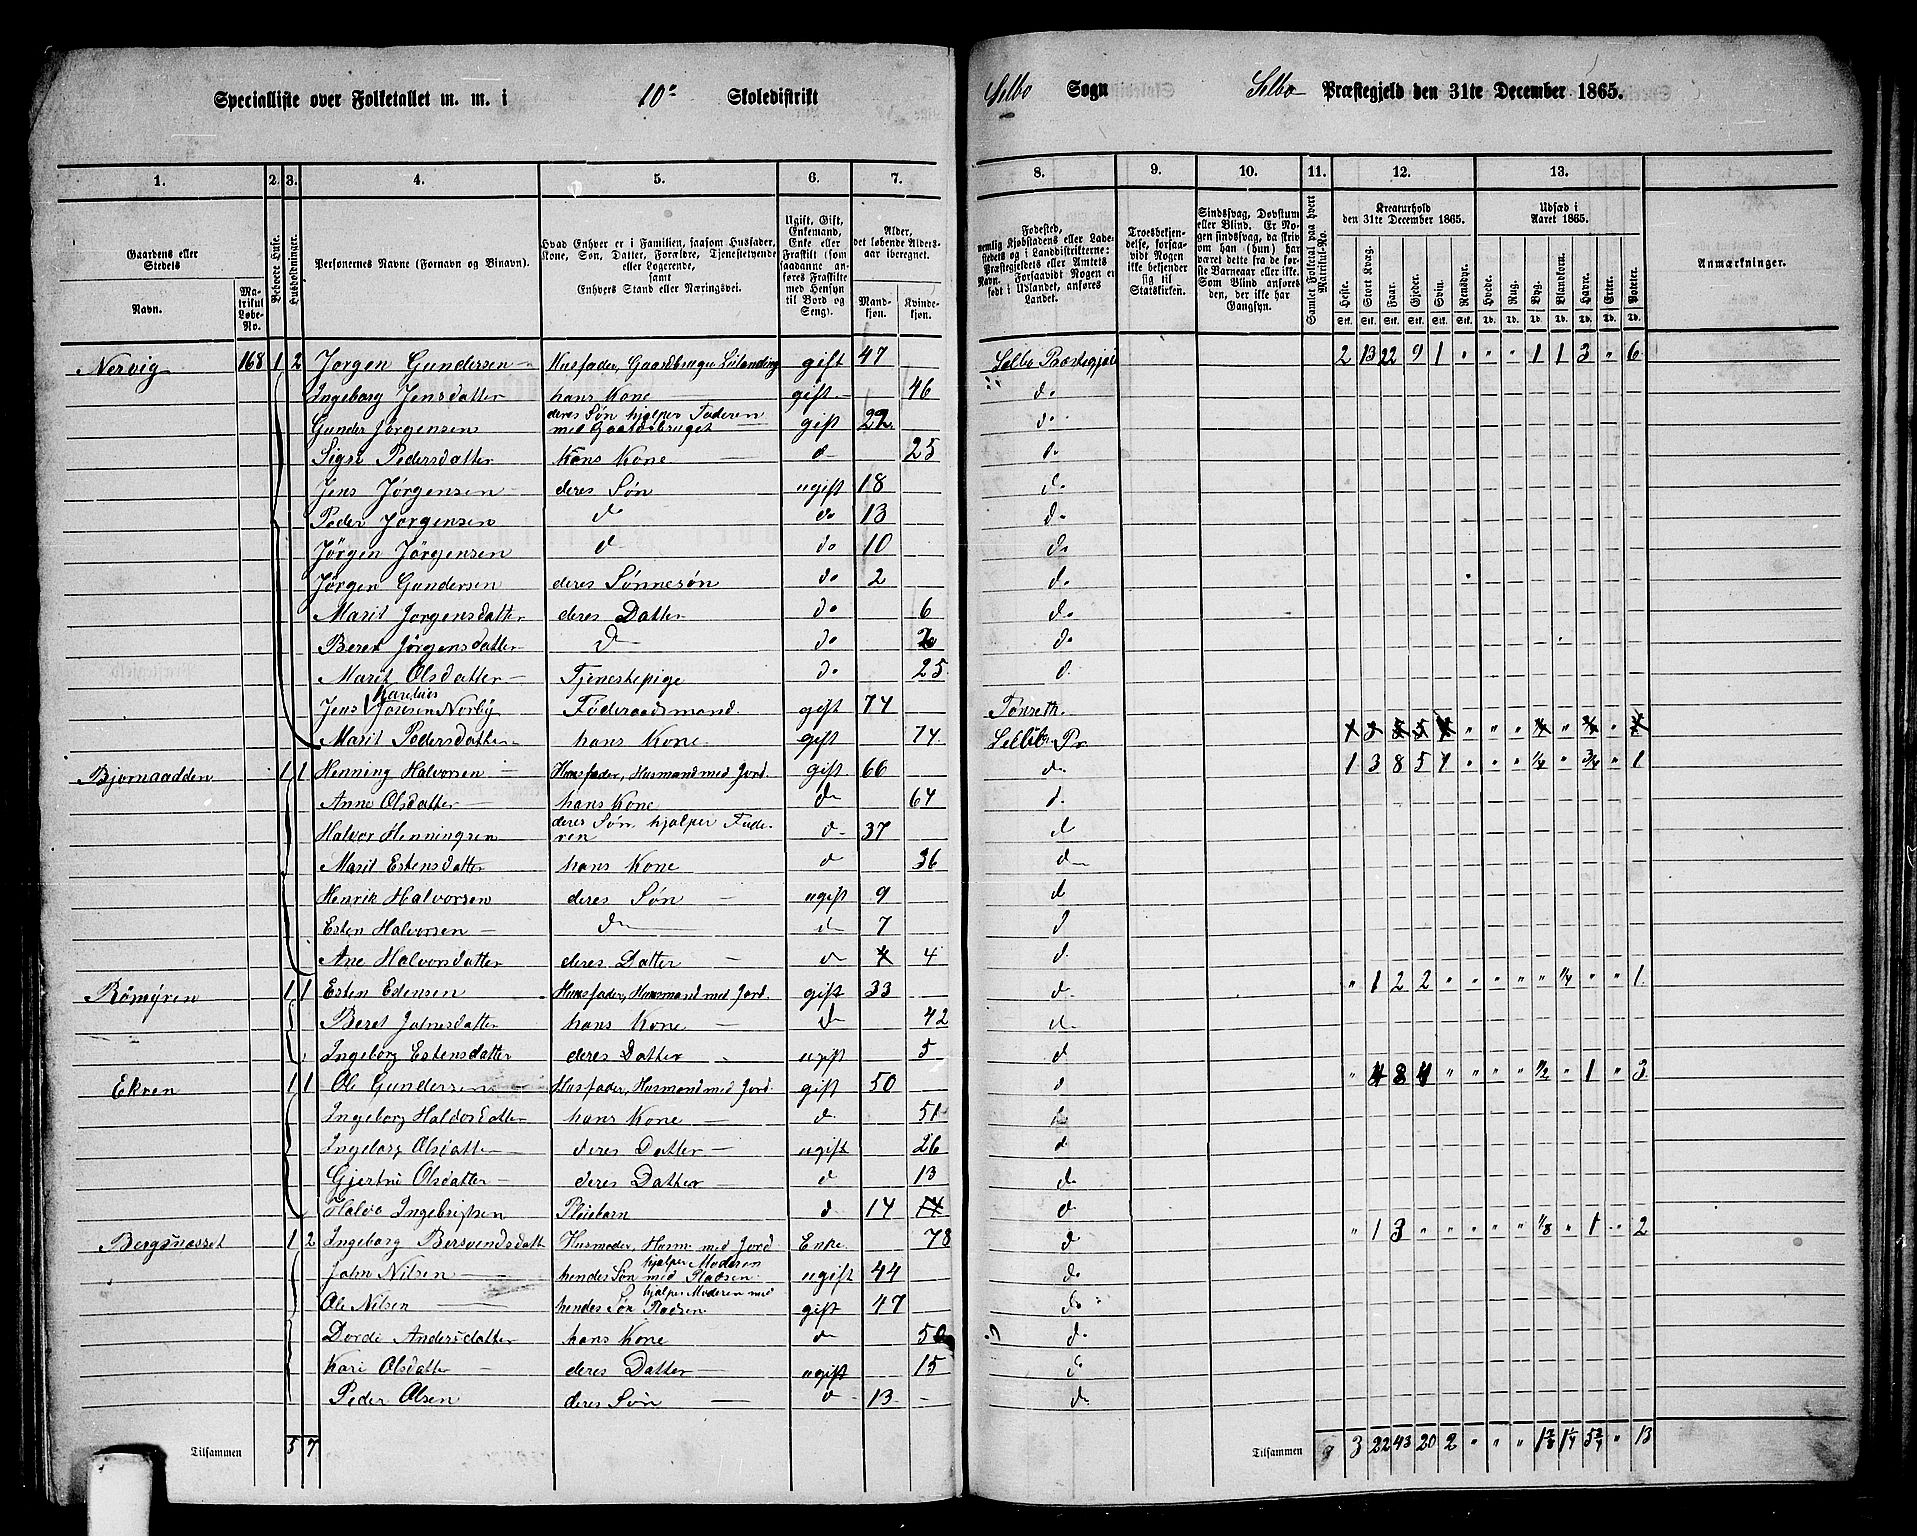 Specialliste over Folketallet m. m. i 10de Skoledistrikt Selbo Sogn Selbo Præstegjeld den 31te December 1865.
1. 2. 3. 4. 5. 6. 7. 8. 9. 10. 11. 12. 13.
Gaardens eller Stedets
Navn. Matrikul Løbe-No.
Beboede Huse.
Husholdninger.
Personernes Navne (Fornavn og Binavn).
Hvad Enhver er i Familien, saasom Husfader, Kone, Søn, Datter, Forældre, Tjenestetyende eller Logerende, samt Enhvers Stand eller Næringsvei.
Ugift, Gift, Enkemand, Enke eller Fraskilt (som saadanne anføres Fraskilte med Hensyn til Bord og Seng).
Alder, det løbende Alders-aar iberegnet.
Mandkjøn. Kvindekjøn.
Fødested, nemlig Kjøbstadens eller Ladestedets og i Landdistrikterne: Præstegjeldets eller Amtets Navn. Forsaavidt Nogen er født i Udlandet, anføres Landet.
Troesbekjendelse, forsaavidt Nogen ikke bekjender sig til Statskirken.
Sindssvag, Døvstum eller Blind. Er Nogen sindssvag, da skrives dette fra de første Barneaar eller ikke. Som Blind anføres den, der ikke har Gangsyn.
Samlet Folketal paa hvert Matrikul-No.
Kreaturhold den 31te December 1865.
Heste. Stort Kvæg. Faar. Gjeder. Svin. Rensdyr.
Udsæd i Aaret 1865.
Hvede. Rug. Byg. Blandkorn. Havre. Erter. Poteter.
Anmærkninger.
Stk. Stk. Stk. Stk. Stk. Stk. Td. Td. Td. Td. Td. Td. Td.
Nervig 168 1 2 Jørgen Gundersen Husfader, Gaardbruger Leilænding gift 47 Selbo Præstegjeld 2 13 22 9 1 " " " 1 1 3 " 6
Ingeborg Jensdatter hans Kone gift 46 do
Gunder Jørgensen deres Søn hjælper Faderen med Gaardsbruget gift 22 do
Sigri Pedersdatter hans Kone d 25 do
Jens Jørgensen deres Søn ugift 18 do
Peder Jørgensen do do 13 do
Jørgen Jørgensen d do 10 do
Jørgen Gundersen deres Sønnesøn do 2 do
Marit Jørgensdatter deres Datter do 6 do
Beret Jørgensdatter d do do
Marit Olsdatter Tjenestepige do 25 d
Jens Norby Føderaadsmand gift 74 Tønseth
Marit Pedersdatter hans Kone gift 74 Selbo Pr
Bjørnaadden 1 1 Henning Halvorsen Husfader, Husmand med Jord gift 66 do 1 3 8 5 1 " " " 1/4 " 3/4 " 1
Anne Olsdatter hans Kone d 64 d
Halvor Henningsen deres Søn, hjælper Faderen d 37 d
Marit Estensdatter hans Kone d 36 d
Henrik Halvorsen deres Søn ugift 9 d
Esten Halvorsen d d 7 d
Ane Halvorsdatter deres Datter d 4 d
Rømyren 1 1 Esten Estensen Husfader, Husmand med Jord gift 33 d " 1 2 2 " " " " " 1/4 " " 1
Beret Johnsdatter hans Kone d 42 d
Ingeborg Estensdatter deres Datter ugift 5 d
Ekren 1 1 Ole Gundersen Husfader, Husmand med Jord gift 50 d " 4 8 4 " " " " 1/2 " 1 " 3
Ingeborg Haldorsdatter hans Kone d 51 d
Ingeborg Olsdatter deres Datter ugift 26 d
Gjertru Olsdatter deres Datter d 13 d
Halvor Ingebrigtsen Pleiebarn d 14 d
Bergsnæsset 1 2 Ingeborg Bersvendsdatt Husmoder, Husm. med Jord Enke 78 d " 1 3 " " " " " 1/8 " 1 " 2
John Nilsen hendes Søn hjælper Moderen med Pladsen ugift 44 do
Ole Nilsen hendes Søn hjælper Moderen med Pladsen gift 47 do
Dordi Andersdatter hans Kone d 50 d
Kari Olsdatter deres Datter ugift 15 d
Peder Olsen deres Søn d 13 d
Tilsammen 5 7 Tilsammen 3 22 43 20 2 " " " 1 7/8 1 1/4 5 3/4 " 13